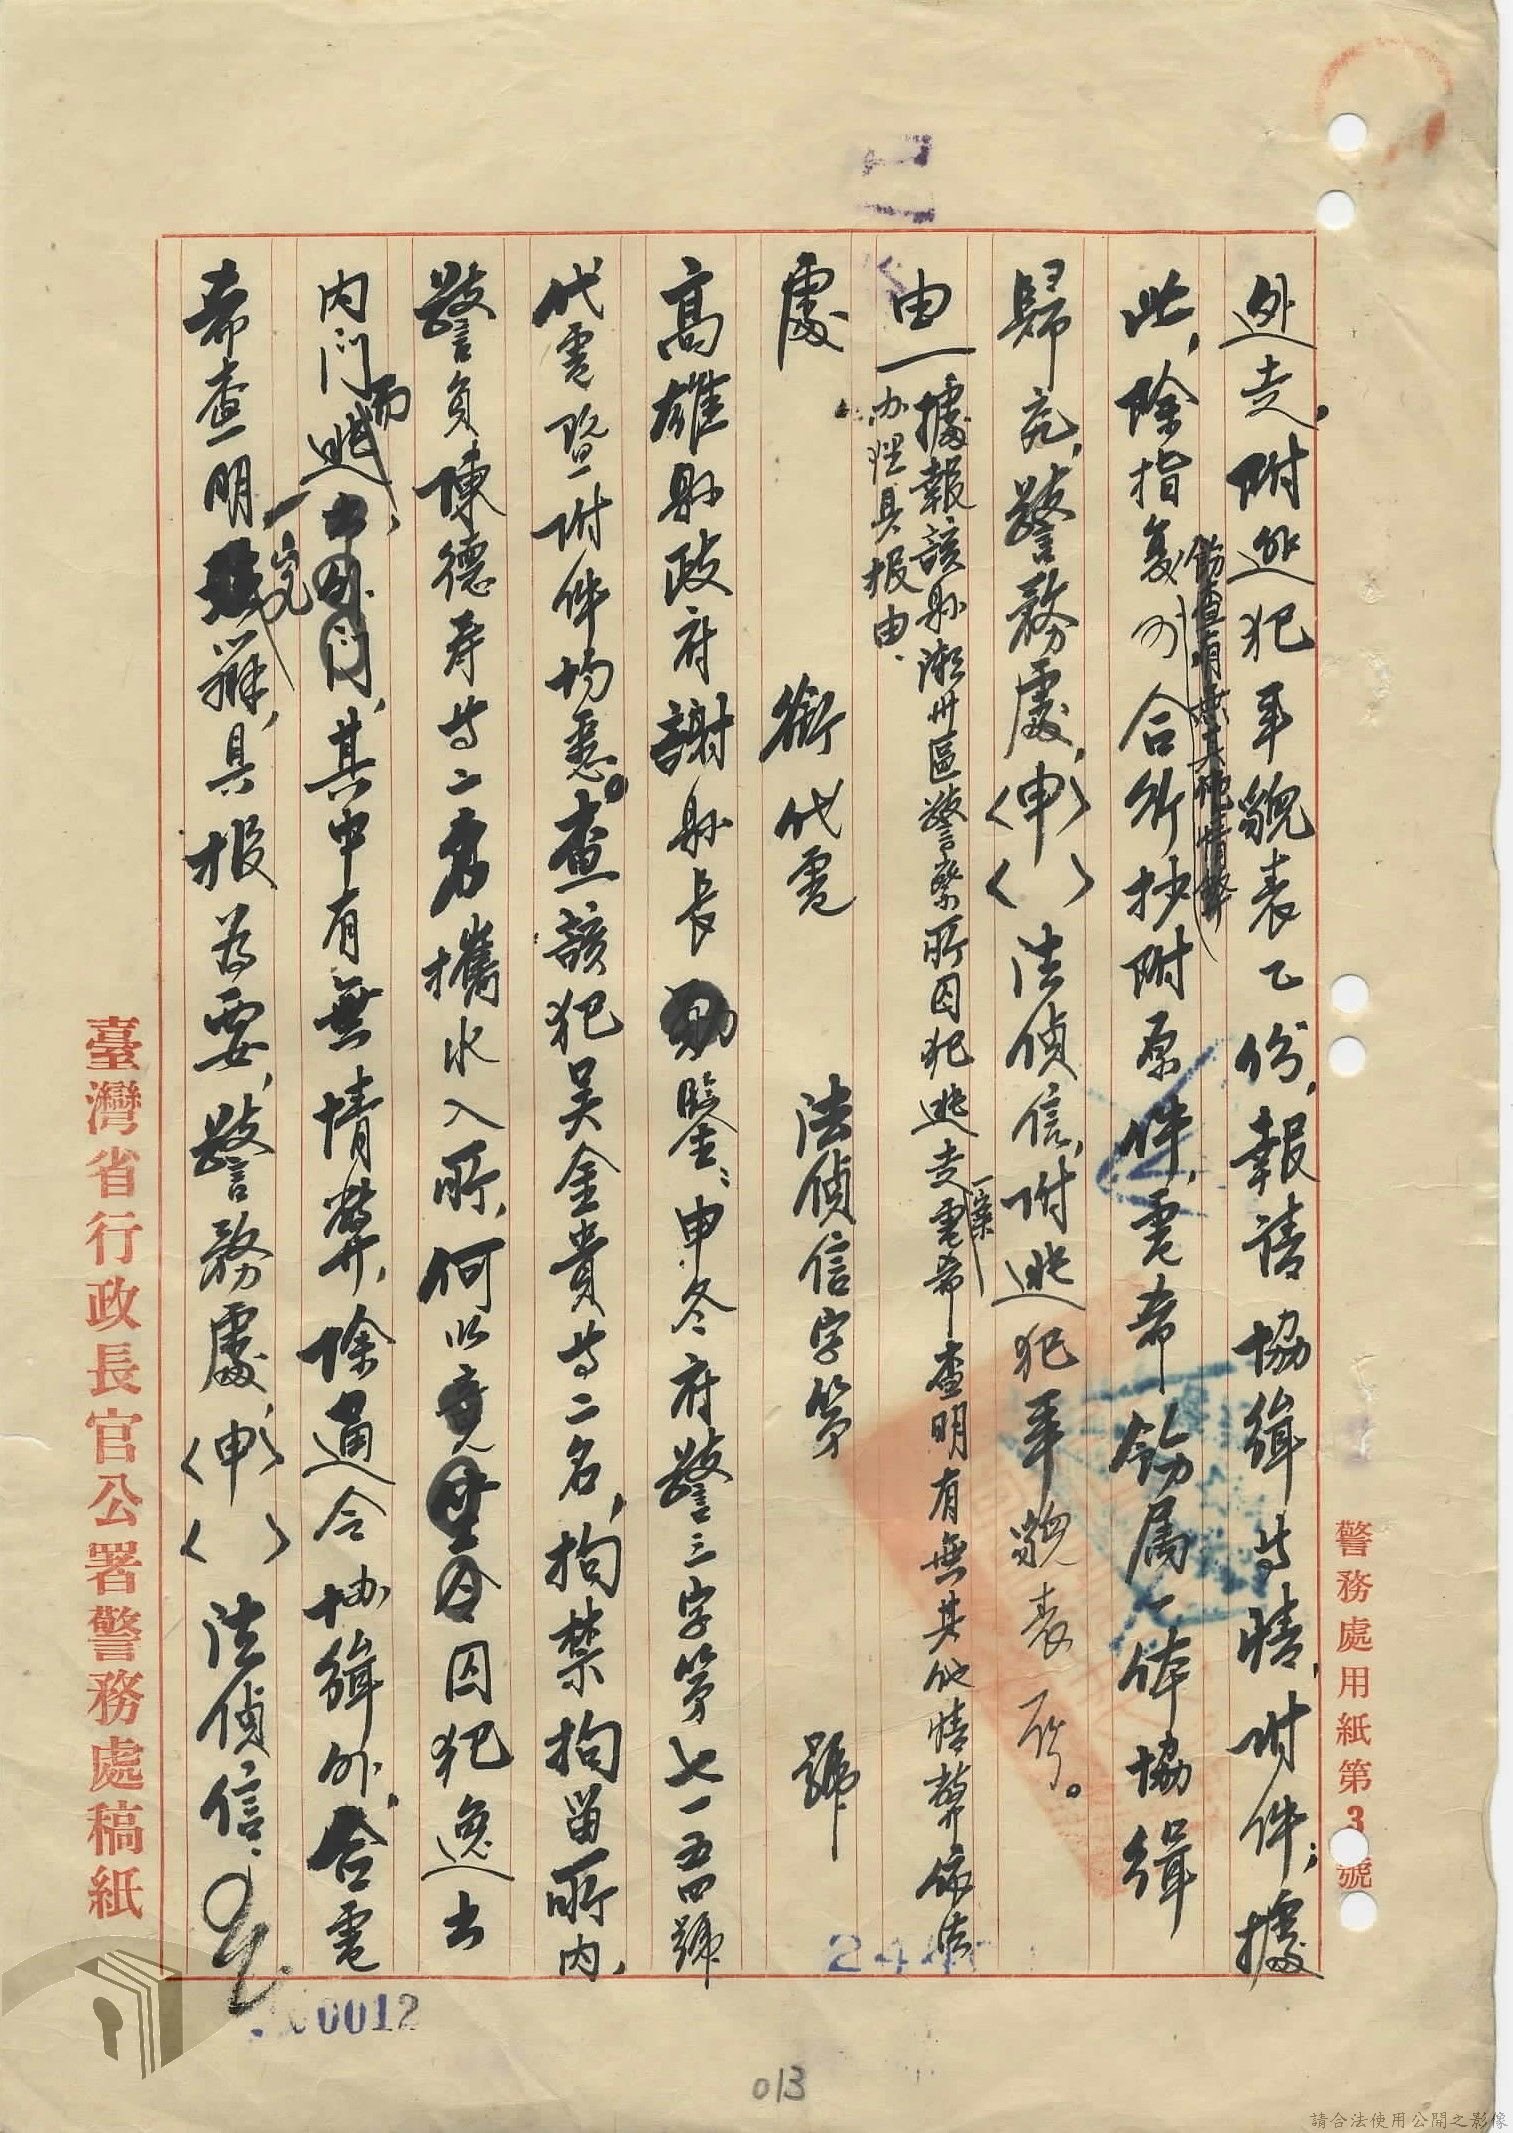 警務處用紙第3號
逃走,附逃犯年貌表乙份,報請協緝等情,附件;據
此,除指复
飭查有無其他情弊
外合行抄附原件,電希飭属一体協緝
歸究,警務處,(申)()法偵信,附逃犯年貌表一份。
由一據報該縣潮州區警察所囚犯逃走一案電希查明有無其他情弊依法
办理具报由.
處 銜代電 法偵信字第 號
高雄縣政府謝縣長勛鑒:申冬府警三字第七一五四號
代電暨附件均悉。查該犯吴金貴等二名,拘禁拘留所內,
警員陳德寿等二名攜水入所,何以竟囚犯逸出
內門而逃,其中有無情弊,除通令協緝外,合電
希查明究辦,具报為要,警務處,(申)()法偵信.
臺灣省行政長官公署警務處稿紙
244
0012
013
請合法使用公開之影像